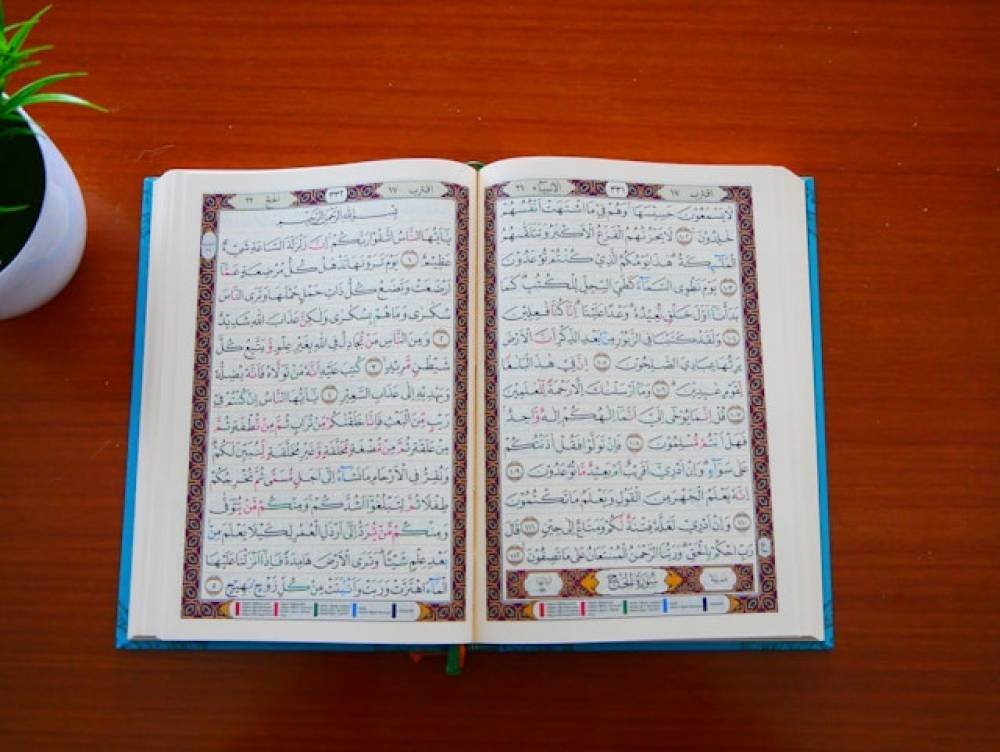 اقترب ١٧ ٣٣١ الأنبياء ٢١
لَا يَسْمَعُونَ حَسِيسَهَا وَهُمْ فِي مَا اشْتَهَتْ أَنْفُسُهُمْ
خٰلِدُونَ ١٠٢ لَا يَحْزُنُهُمُ الْفَزَعُ الْأَكْبَرُ وَتَتَلَقّٰهُمُ
الْمَلٰٓئِكَةُ هٰذَا يَوْمُكُمُ الَّذِي كُنْتُمْ تُوعَدُونَ
١٠٣ يَوْمَ نَطْوِي السَّمَآءَ كَطَيِّ السِّجِلِّ لِلْكُتُبِ كَمَا
بَدَأْنَآ أَوَّلَ خَلْقٍ نُعِيدُهُ وَعْدًا عَلَيْنَآ إِنَّا كُنَّا فٰعِلِينَ
١٠٤ وَلَقَدْ كَتَبْنَا فِي الزَّبُورِ مِنْ بَعْدِ الذِّكْرِ أَنَّ الْأَرْضَ
يَرِثُهَا عِبَادِيَ الصّٰلِحُونَ ١٠٥ إِنَّ فِي هٰذَا لَبَلٰغًا
لِقَوْمٍ عٰبِدِينَ ١٠٦ وَمَآ أَرْسَلْنٰكَ إِلَّا رَحْمَةً لِلْعٰلَمِينَ
١٠٧ قُلْ إِنَّمَا يُوحٰىٓ إِلَيَّ أَنَّمَآ إِلٰهُكُمْ إِلٰهٌ وّٰحِدٌ
فَهَلْ أَنْتُمْ مُسْلِمُونَ ١٠٨ فَإِنْ تَوَلَّوْا فَقُلْ اٰذَنْتُكُمْ
عَلٰى سَوَآءٍ وَإِنْ أَدْرِيٓ أَقَرِيبٌ أَمْ بَعِيدٌ مَّا تُوعَدُونَ
١٠٩ إِنَّهُ يَعْلَمُ الْجَهْرَ مِنَ الْقَوْلِ وَيَعْلَمُ مَا تَكْتُمُونَ
١١٠ وَإِنْ أَدْرِي لَعَلَّهُ فِتْنَةٌ لَّكُمْ وَمَتَاعٌ إِلٰى حِينٍ ١١١ قٰلَ
رَبِّ احْكُمْ بِالْحَقِّ وَرَبُّنَا الرَّحْمٰنُ الْمُسْتَعَانُ عَلٰى مَا تَصِفُونَ ١١٢
سُورَةُ الْحَجِّ
اقترب ١٧ ٣٣٢ الحج ٢٢
بِسْمِ اللهِ الرَّحْمٰنِ الرَّحِيمِ
يٰٓأَيُّهَا النَّاسُ اتَّقُوا رَبَّكُمْ إِنَّ زَلْزَلَةَ السَّاعَةِ شَيْءٌ
عَظِيمٌ ١ يَوْمَ تَرَوْنَهَا تَذْهَلُ كُلُّ مُرْضِعَةٍ عَمَّآ
أَرْضَعَتْ وَتَضَعُ كُلُّ ذَاتِ حَمْلٍ حَمْلَهَا وَتَرَى النَّاسَ
سُكٰرٰى وَمَا هُمْ بِسُكٰرٰى وَلٰكِنَّ عَذَابَ اللهِ شَدِيدٌ
٢ وَمِنَ النَّاسِ مَنْ يُجَادِلُ فِي اللهِ بِغَيْرِ عِلْمٍ وَّيَتَّبِعُ كُلَّ
شَيْطٰنٍ مَّرِيدٍ ٣ كُتِبَ عَلَيْهِ أَنَّهُ مَنْ تَوَلَّاهُ فَأَنَّهُ يُضِلُّهُ
وَيَهْدِيهِ إِلٰى عَذَابِ السَّعِيرِ ٤ يٰٓأَيُّهَا النَّاسُ إِنْ كُنْتُمْ فِي
رَيْبٍ مِّنَ الْبَعْثِ فَإِنَّا خَلَقْنٰكُمْ مِّنْ تُرَابٍ ثُمَّ مِنْ نُّطْفَةٍ ثُمَّ
مِنْ عَلَقَةٍ ثُمَّ مِنْ مُّضْغَةٍ مُّخَلَّقَةٍ وَّغَيْرِ مُخَلَّقَةٍ لِّنُبَيِّنَ لَكُمْ
وَنُقِرُّ فِي الْأَرْحَامِ مَا نَشَآءُ إِلٰىٓ أَجَلٍ مُّسَمًّى ثُمَّ نُخْرِجُكُمْ
طِفْلًا ثُمَّ لِتَبْلُغُوٓا أَشُدَّكُمْ وَمِنْكُمْ مَّنْ يُتَوَفّٰى
وَمِنْكُمْ مَّنْ يُرَدُّ إِلٰىٓ أَرْذَلِ الْعُمُرِ لِكَيْلَا يَعْلَمَ مِنْ
بَعْدِ عِلْمٍ شَيْئًا وَتَرَى الْأَرْضَ هَامِدَةً فَإِذَآ أَنْزَلْنَا عَلَيْهَا
الْمَآءَ اهْتَزَّتْ وَرَبَتْ وَأَنْبَتَتْ مِنْ كُلِّ زَوْجٍ بَهِيجٍ ٥